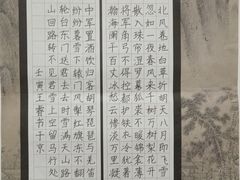 北风卷地白草折胡天八月即飞雪
忽如一夜春风来千树万树梨花开
散入珠帘湿罗幕狐裘不暖锦衾薄
将军角弓不得控都护铁衣冷难着
瀚海阑干百丈冰愁云惨淡万里凝
中军置酒饮归客胡琴琵琶与羌笛
纷纷暮雪下辕门风掣红旗冻不翻
轮台东门送君去去时雪满天山路
山回路转不见君雪上空留马行处
壬寅王睿书于京